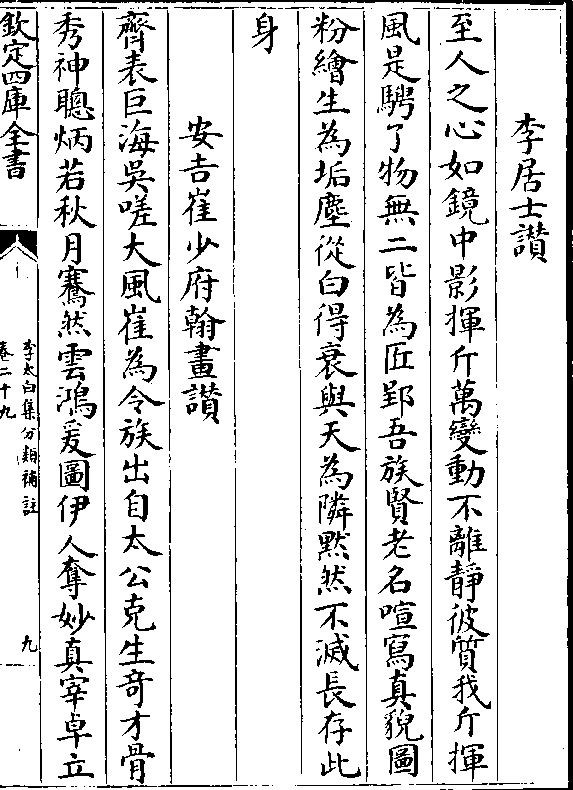 李居士讃
至人之心如鏡中影揮斤萬變動不離靜彼質我斤揮
風是騁了物無二皆為匠郢吾族賢老名喧寫真貌圖
粉繪生為垢塵從白得衰與天為隣黙然不滅長存此
身
安吉崔少府翰畫讃
齊表巨海吳嗟大風崔為令族出自太公克生竒才骨
秀神聰炳若秋月騫然雲鴻爰圖伊人奪妙真宰卓立
欽定四庫全書
李太白集分類補註
卷二十九
九